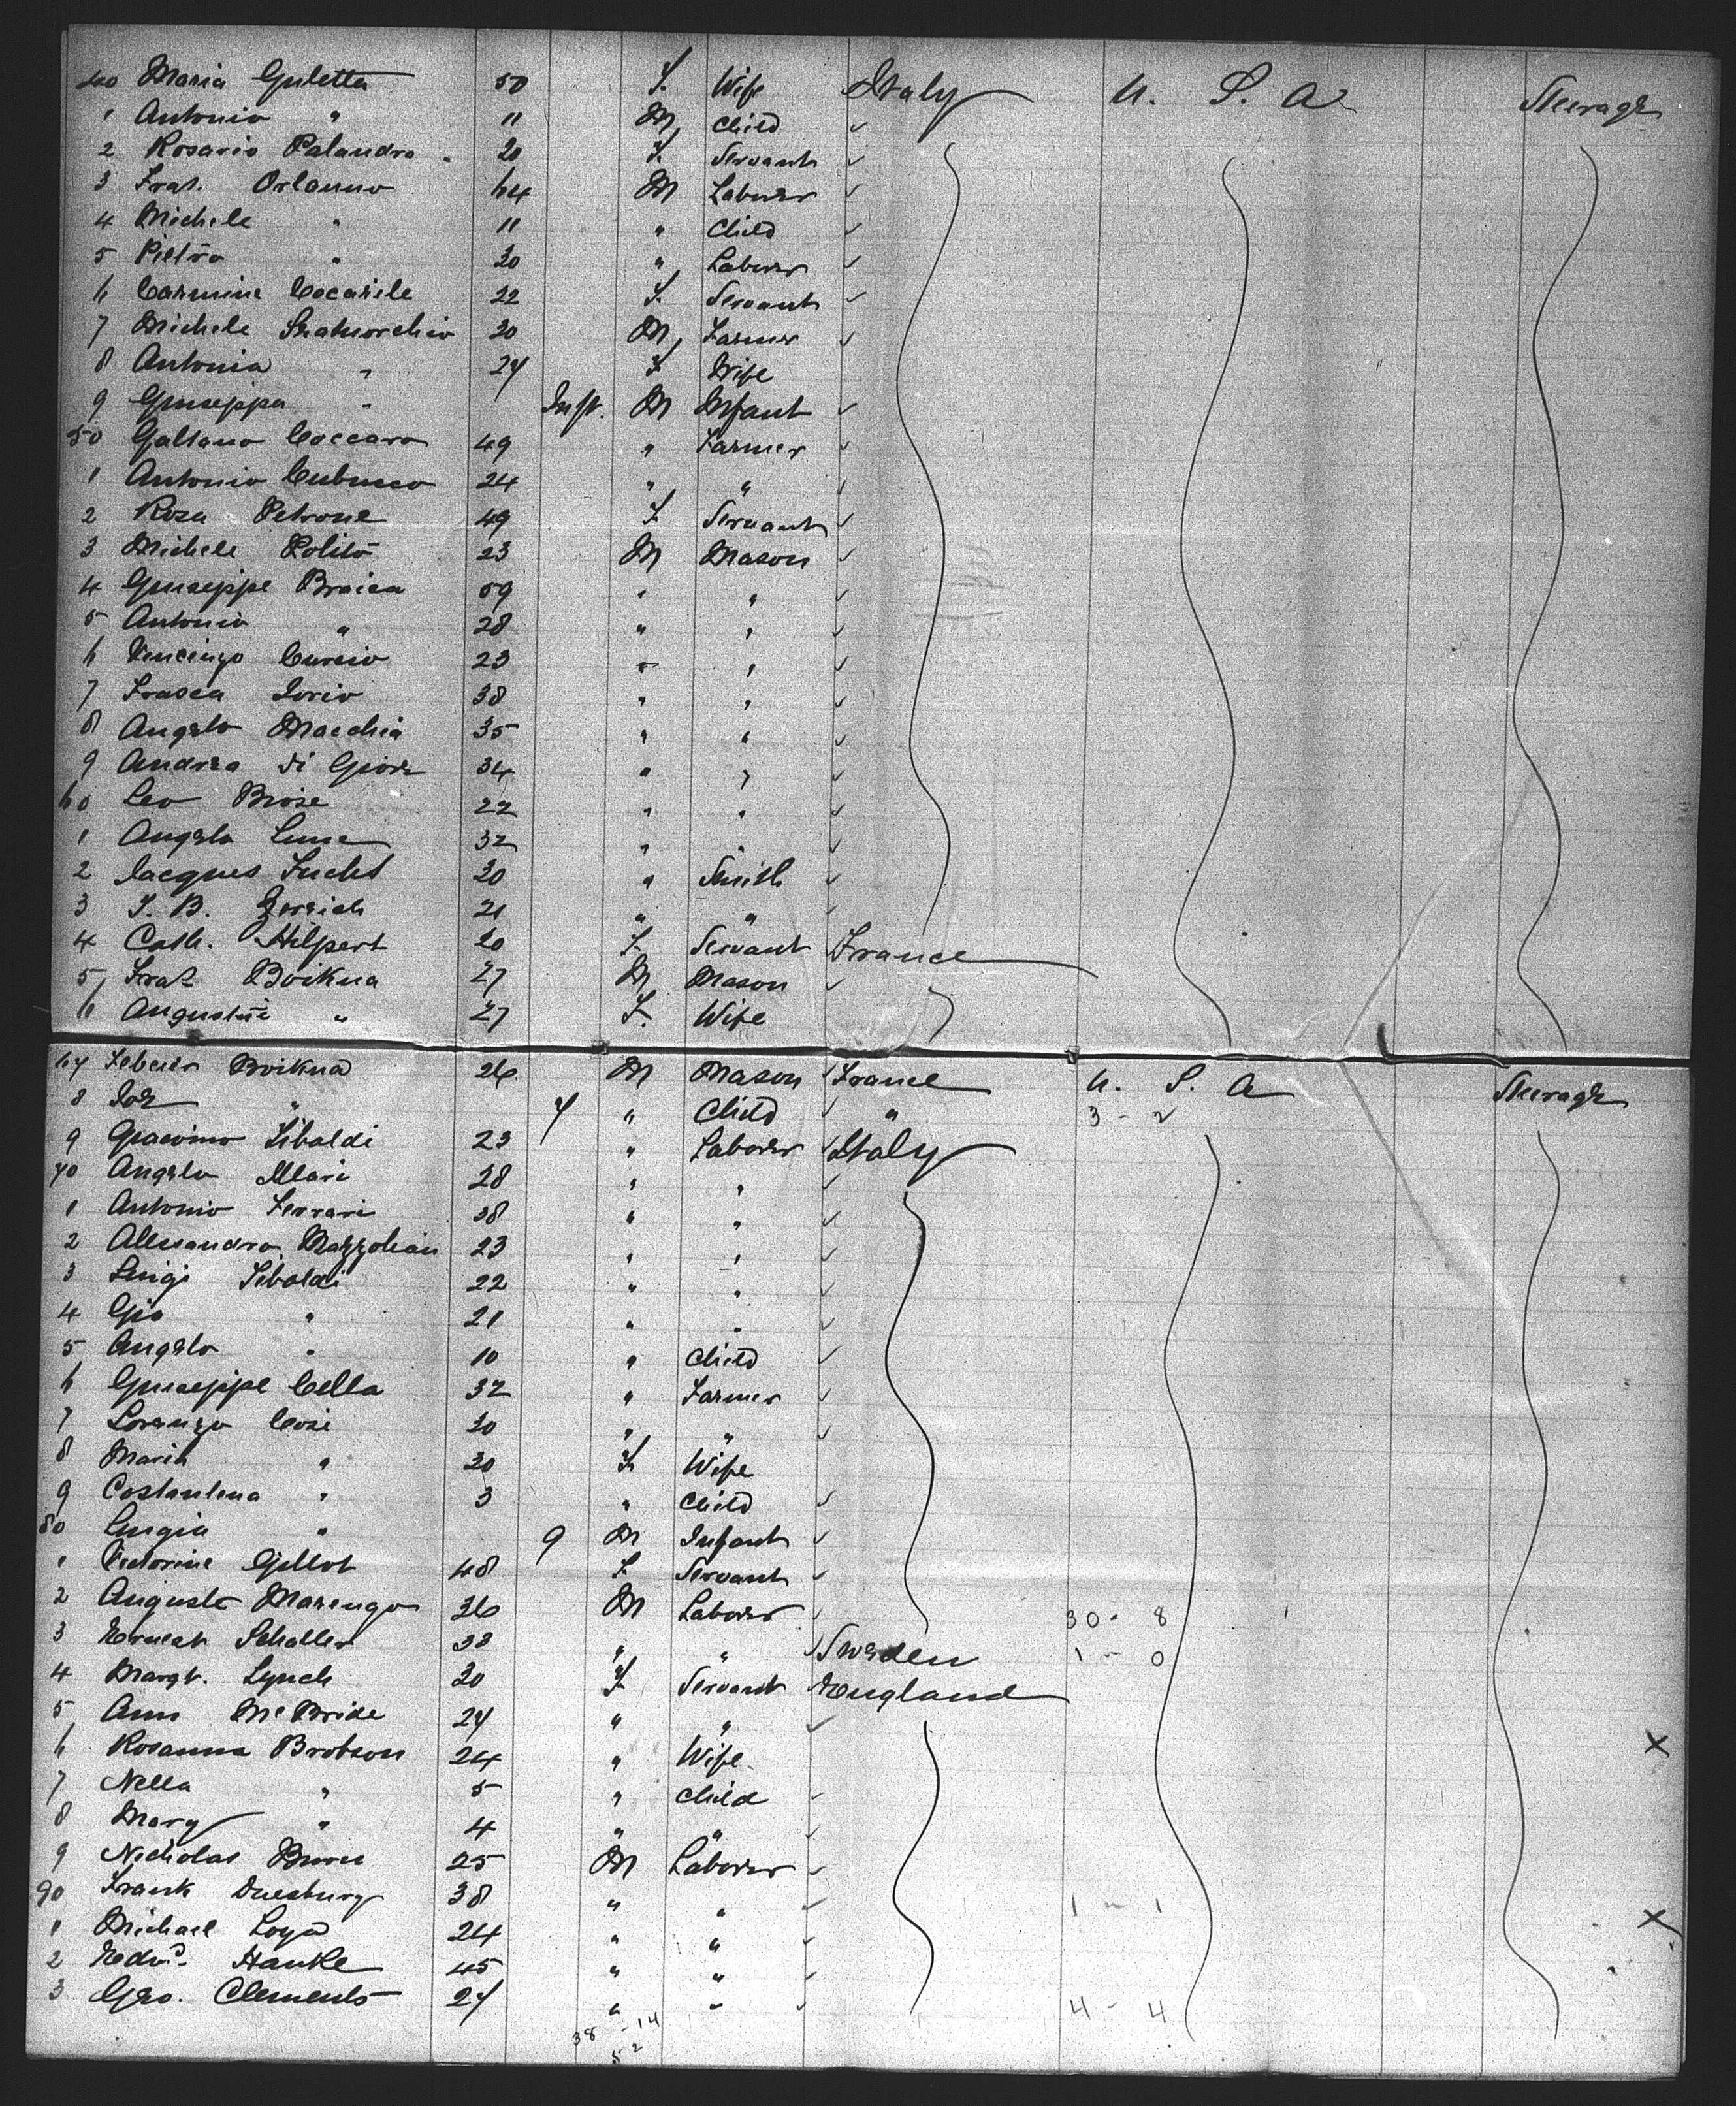 40 Maria Guletta 50 F. Wife Italy U. S. A Steerage
1 Antonio " 11 M, Child ✓
2 Rosario Palandro 20 F. Servant ✓
3 Fras. Orlanno 64 M Laborer ✓
4 Michele " 11 " Child ✓
5 Pietro " 30 " Laborer ✓
6 Carmine Cocarele 22 F. Servant ✓
7 Michele 30 M, Farmer ✓
8 Antonia " 27 F Wife
9 Giuseppa " Inft. M Infant ✓
50 Galtano Coccaro 49 " Farmer ✓
1 Antonio 24 " " ✓
2 Rosa Petrone 49 F. Servant ✓
3 Michele Polito 23 M Mason ✓
4 Giuseppe Braica 59 " " ✓
5 Antonio " 28 " " ✓
6 Vencenzo Curcio 23 " " ✓
7 Frasca Iorio 38 " " ✓
8 Angelo Macchia 35 " " ✓
9 Andrea di Giore 34 " " ✓
60 Leo Brose 22 " " ✓
1 Angelo 32 " " ✓
2 Jacques Fuchs 20 " Smith ✓
3 J. B. 21 " " ✓
4 Cath. Hilpert 20 F. Servant France
5 Fras Boikua 27 M Mason ✓
6 Augustine " 27 F. Wife
67 Boikua 26 M Mason France U. S. A Steerage
8 Jos " 7 " Child ✓ " 3 - 2
9 Giacomo Sibaldi 23 " Laborer ✓ Italy
70 Angelo Illari 28 " " ✓
1 Antonio Ferrari 38 " " ✓
2 Alessandro 23 " " ✓
3 Luigi Sibaldi 22 " " ✓
4 Gio " 21 " " ✓
5 Angelo " 10 " Child ✓
6 Giuseppe Cella 32 " Farmer ✓
7 Lorenzo Cosi 30 " " ✓
8 Maria " 30 F. Wife
9 Costantina " 3 " Child ✓
80 Luigia " 9 M Infant ✓
1 Victorine Gillot 48 F. Servant ✓
2 Auguste Marengo 36 M Laborer ✓ 30 - 8
3 Ernest Schaller 38 " " ✓ Sweden 1 - 0
4 Margt. Lynch 30 F. Servant England
5 Ann McBride 27 " " ✓
6 Rosanna Brobson 24 " Wife X
7 Nella " 5 " Child ✓
8 Mary " 4 " " ✓
9 Nicholas Burns 25 M Laborer ✓
90 Frank Duesbury 38 " " ✓ 1 - 1
1 Michael Loyd 24 " " ✓ X
2 Edwd. Hanke 45 " " ✓
3 Geo. Clements 27 " " ✓ 4 - 4
38 - 14
52